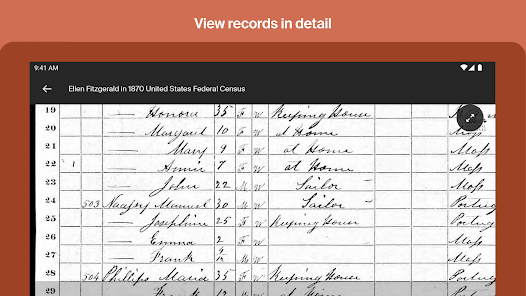 View records in detail
9:41 AM
Ellen Fitzgerald in 1870 United States Federal Census
19 — Honora 35 F W Keeping House
20 — Margaret 10 F W at Home Mass
21 — Mary 9 F W at Home Mass
22 1 — Annie 7 F W at Home Mass
23 — John 22 M W Sailor Mass
24 503 Manuel 30 M W Sailor Portug
25 — Josephine 25 F W Keeping House Portug
26 — Emma 2 F W Mass
27 — Frank M W Mass
28 504 Phillips Maria 35 F W Keeping House Portug
29 — Frank 12 M W at Home